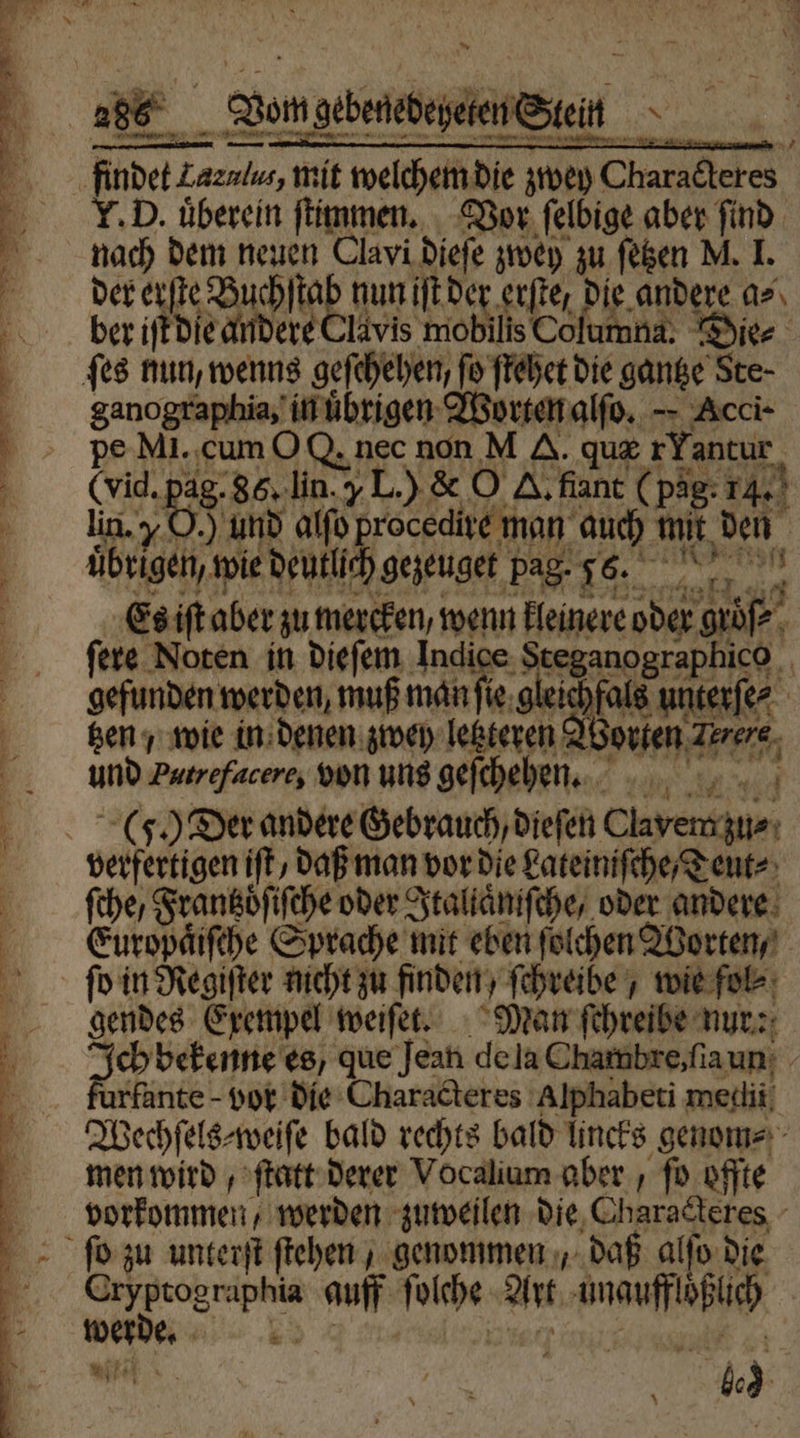 286 Vom gebenedeyeten Stein
findet Lazulus, mit welchem die zwey Characteres
Y. D. uͤberein ſtimmen. Vor ſelbige aber ſind
nach dem neuen Clavi dieſe zwey zu ſetzen M. I.
der erſte Buchſtab nun iſt der erſte, die andere a⸗
ber iſt die andere Clavis mobilis Columna. Die⸗
ſes nun, wenns geſchehen, ſo ſtehet die gantze Ste-
ganographia, in uͤbrigen Worten alſo. -- Acci-
pe MI. cum O Q. nec non M Δ. quæ rYantur
(vid. pag. 86. lin. y L.) & O Δ. fiant (pag. 14.
lin. y O.) und alſo procedire man auch mit den
uͤbrigen, wie deutlich gezeuget pag. 56.
Es iſt aber zu mercken, wenn kleinere oder groͤſ⸗
ſere Noten in dieſem Indice Steganographico
gefunden werden, muß man ſie gleichfals unterſe⸗
tzen, wie in denen zwey letzteren Worten Terere
und Putrefacere, von uns geſchehen.
(5.) Der andere Gebrauch, dieſen Clavem zu⸗
verfertigen iſt, daß man vor die Lateiniſche, Teut⸗
ſche, Frantzoͤſiſche oder Italiaͤniſche, oder andere
Europaͤiſche Sprache mit eben ſolchen Worten,
ſo in Regiſter nicht zu finden, ſchreibe, wie fol⸗
gendes Exempel weiſet. Man ſchreibe nur:
Ich bekenne es, que Jean de la Chambre, ſia un
furfante - vor die Characteres Alphabeti medii
Wechſels-weiſe bald rechts bald lincks genom⸗
men wird, ſtatt derer Vocalium aber, ſo offte
vorkommen, werden zuweilen die Characteres
ſo zu unterſt ſtehen, genommen, daß alſo die
Cryptographia auff ſolche Art unauffloͤßlich
werde.